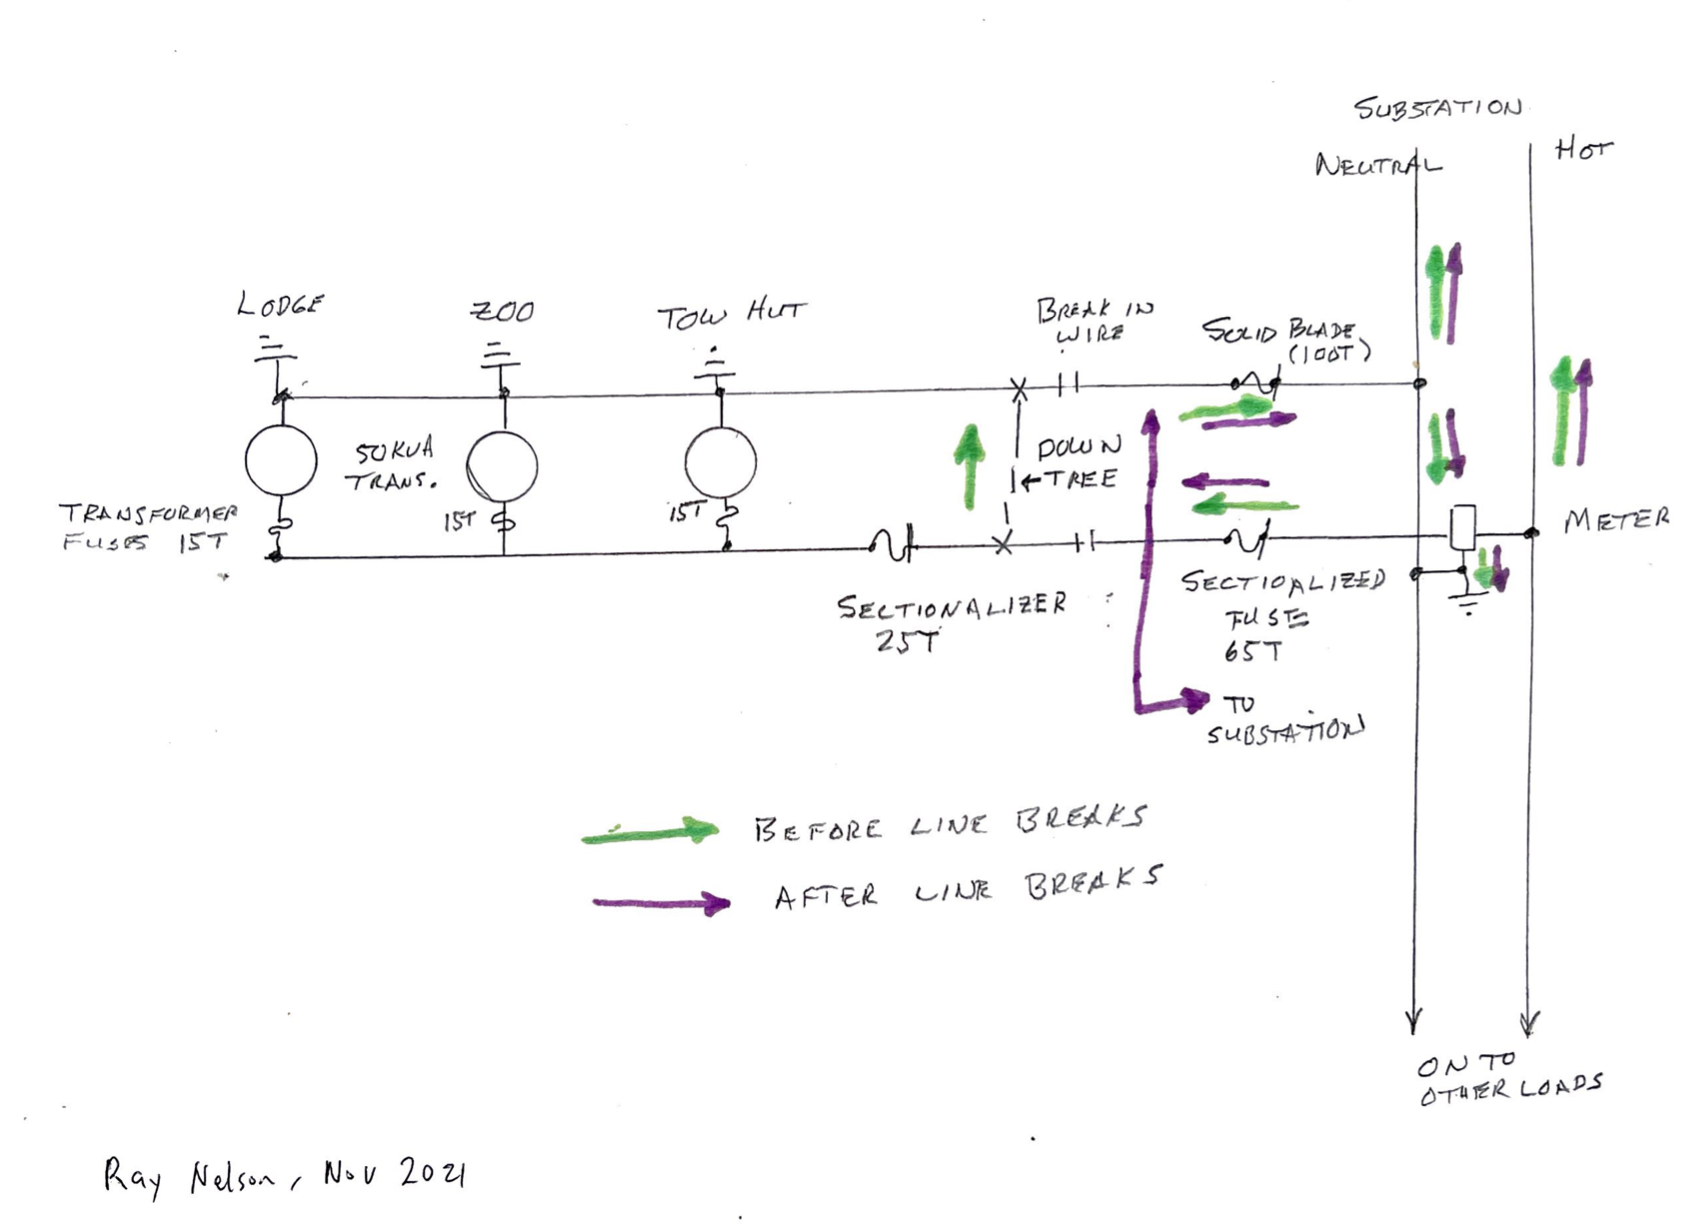 SUBSTATION
NEUTRAL
HOT
LODGE
ZOO
TOW HUT
BREAK IN
WIRE
SOLID BLADE
(100T)
50KVA
TRANS.
TRANSFORMER
FUSES 15T
15T
15T
DOWN
TREE
METER
SECTIONALIZER
25T
SECTIOALIZED
FUSE
65T
TO
SUBSTATION
BEFORE LINE BREAKS
AFTER LINE BREAKS
ON TO
OTHER LOADS
Ray Nelson, Nov 2021